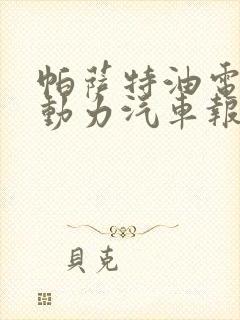 帕薩特油電
動力汽車報
貝克